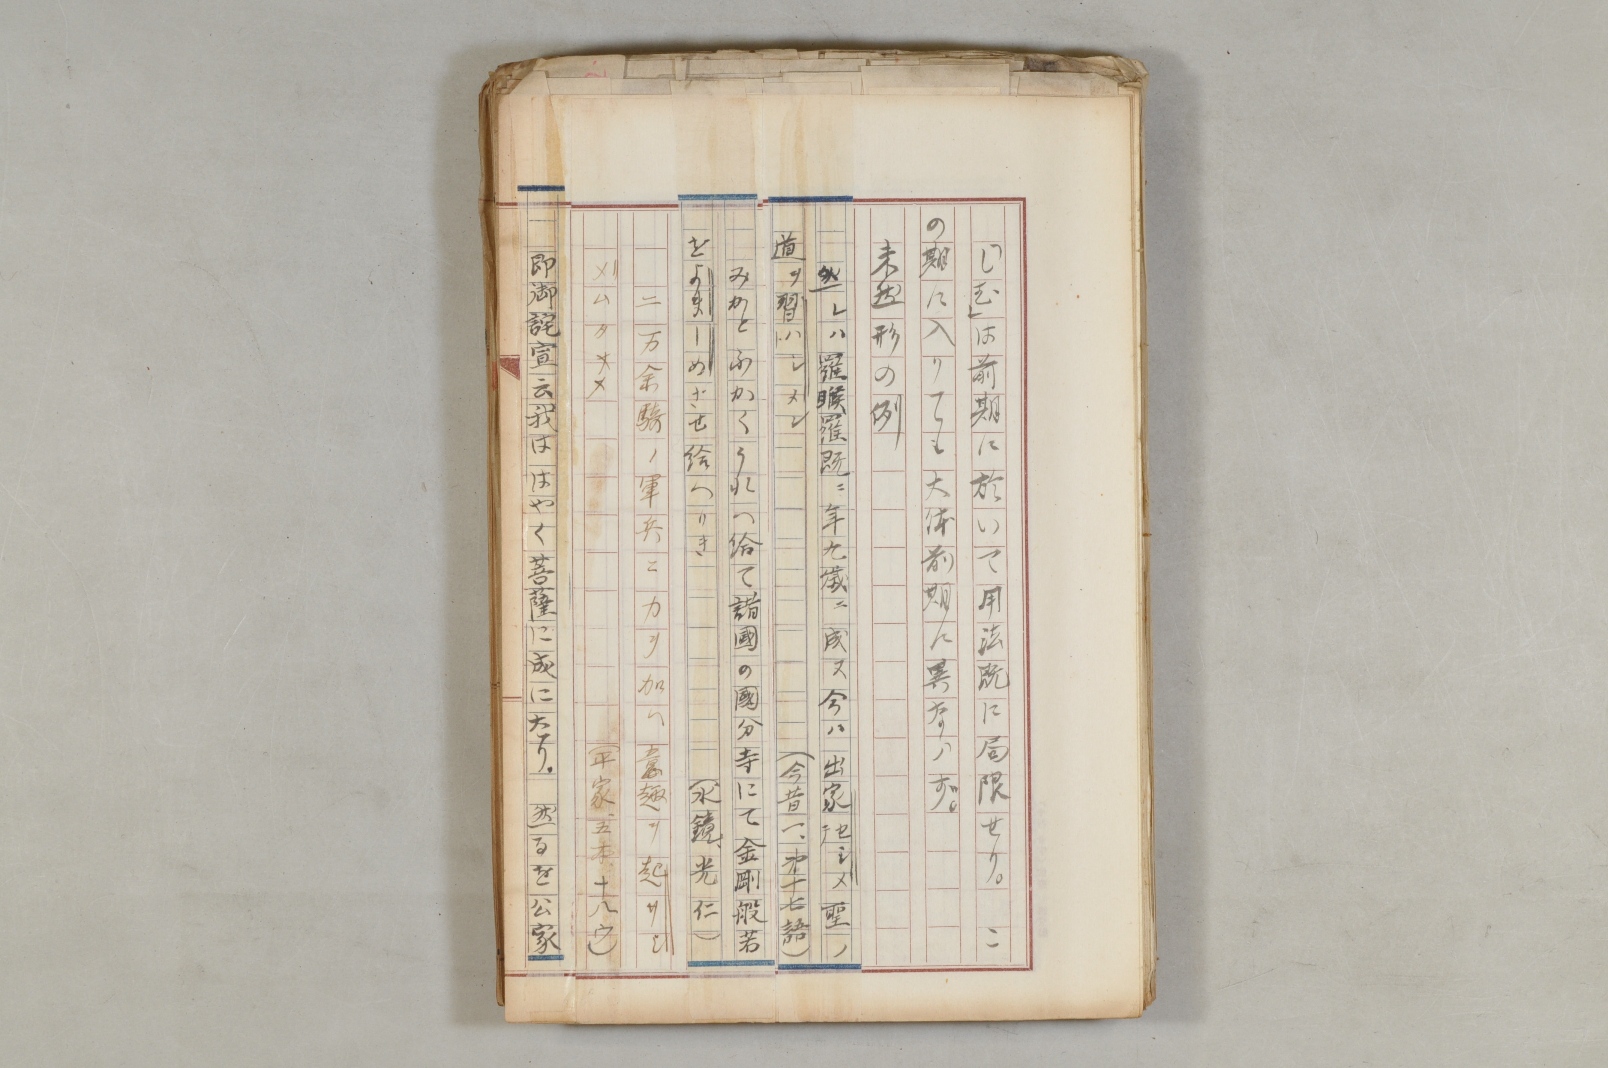 「しむ」は前期に於いて用法既に局限せり。こ
の期に入りても大体前期に異ならず。
未然形の例
然レハ羅睺羅既ニ年九歳ニ成ヌ今ハ出家セシメ聖ノ
道ヲ習ハシメン
(今昔一、第十七語)
みかとふかくうれへ給て諸國の國分寺にて金剛般若
をよましめさせ給へりき
(水鏡、光仁)
二万余騎ノ軍兵ニ力ヲ加ヘ意趣ヲ起サシ
メムタメ
(平家五本、十八ウ)
即御詫宣云我ははやく菩薩に成にたり。然るを公家